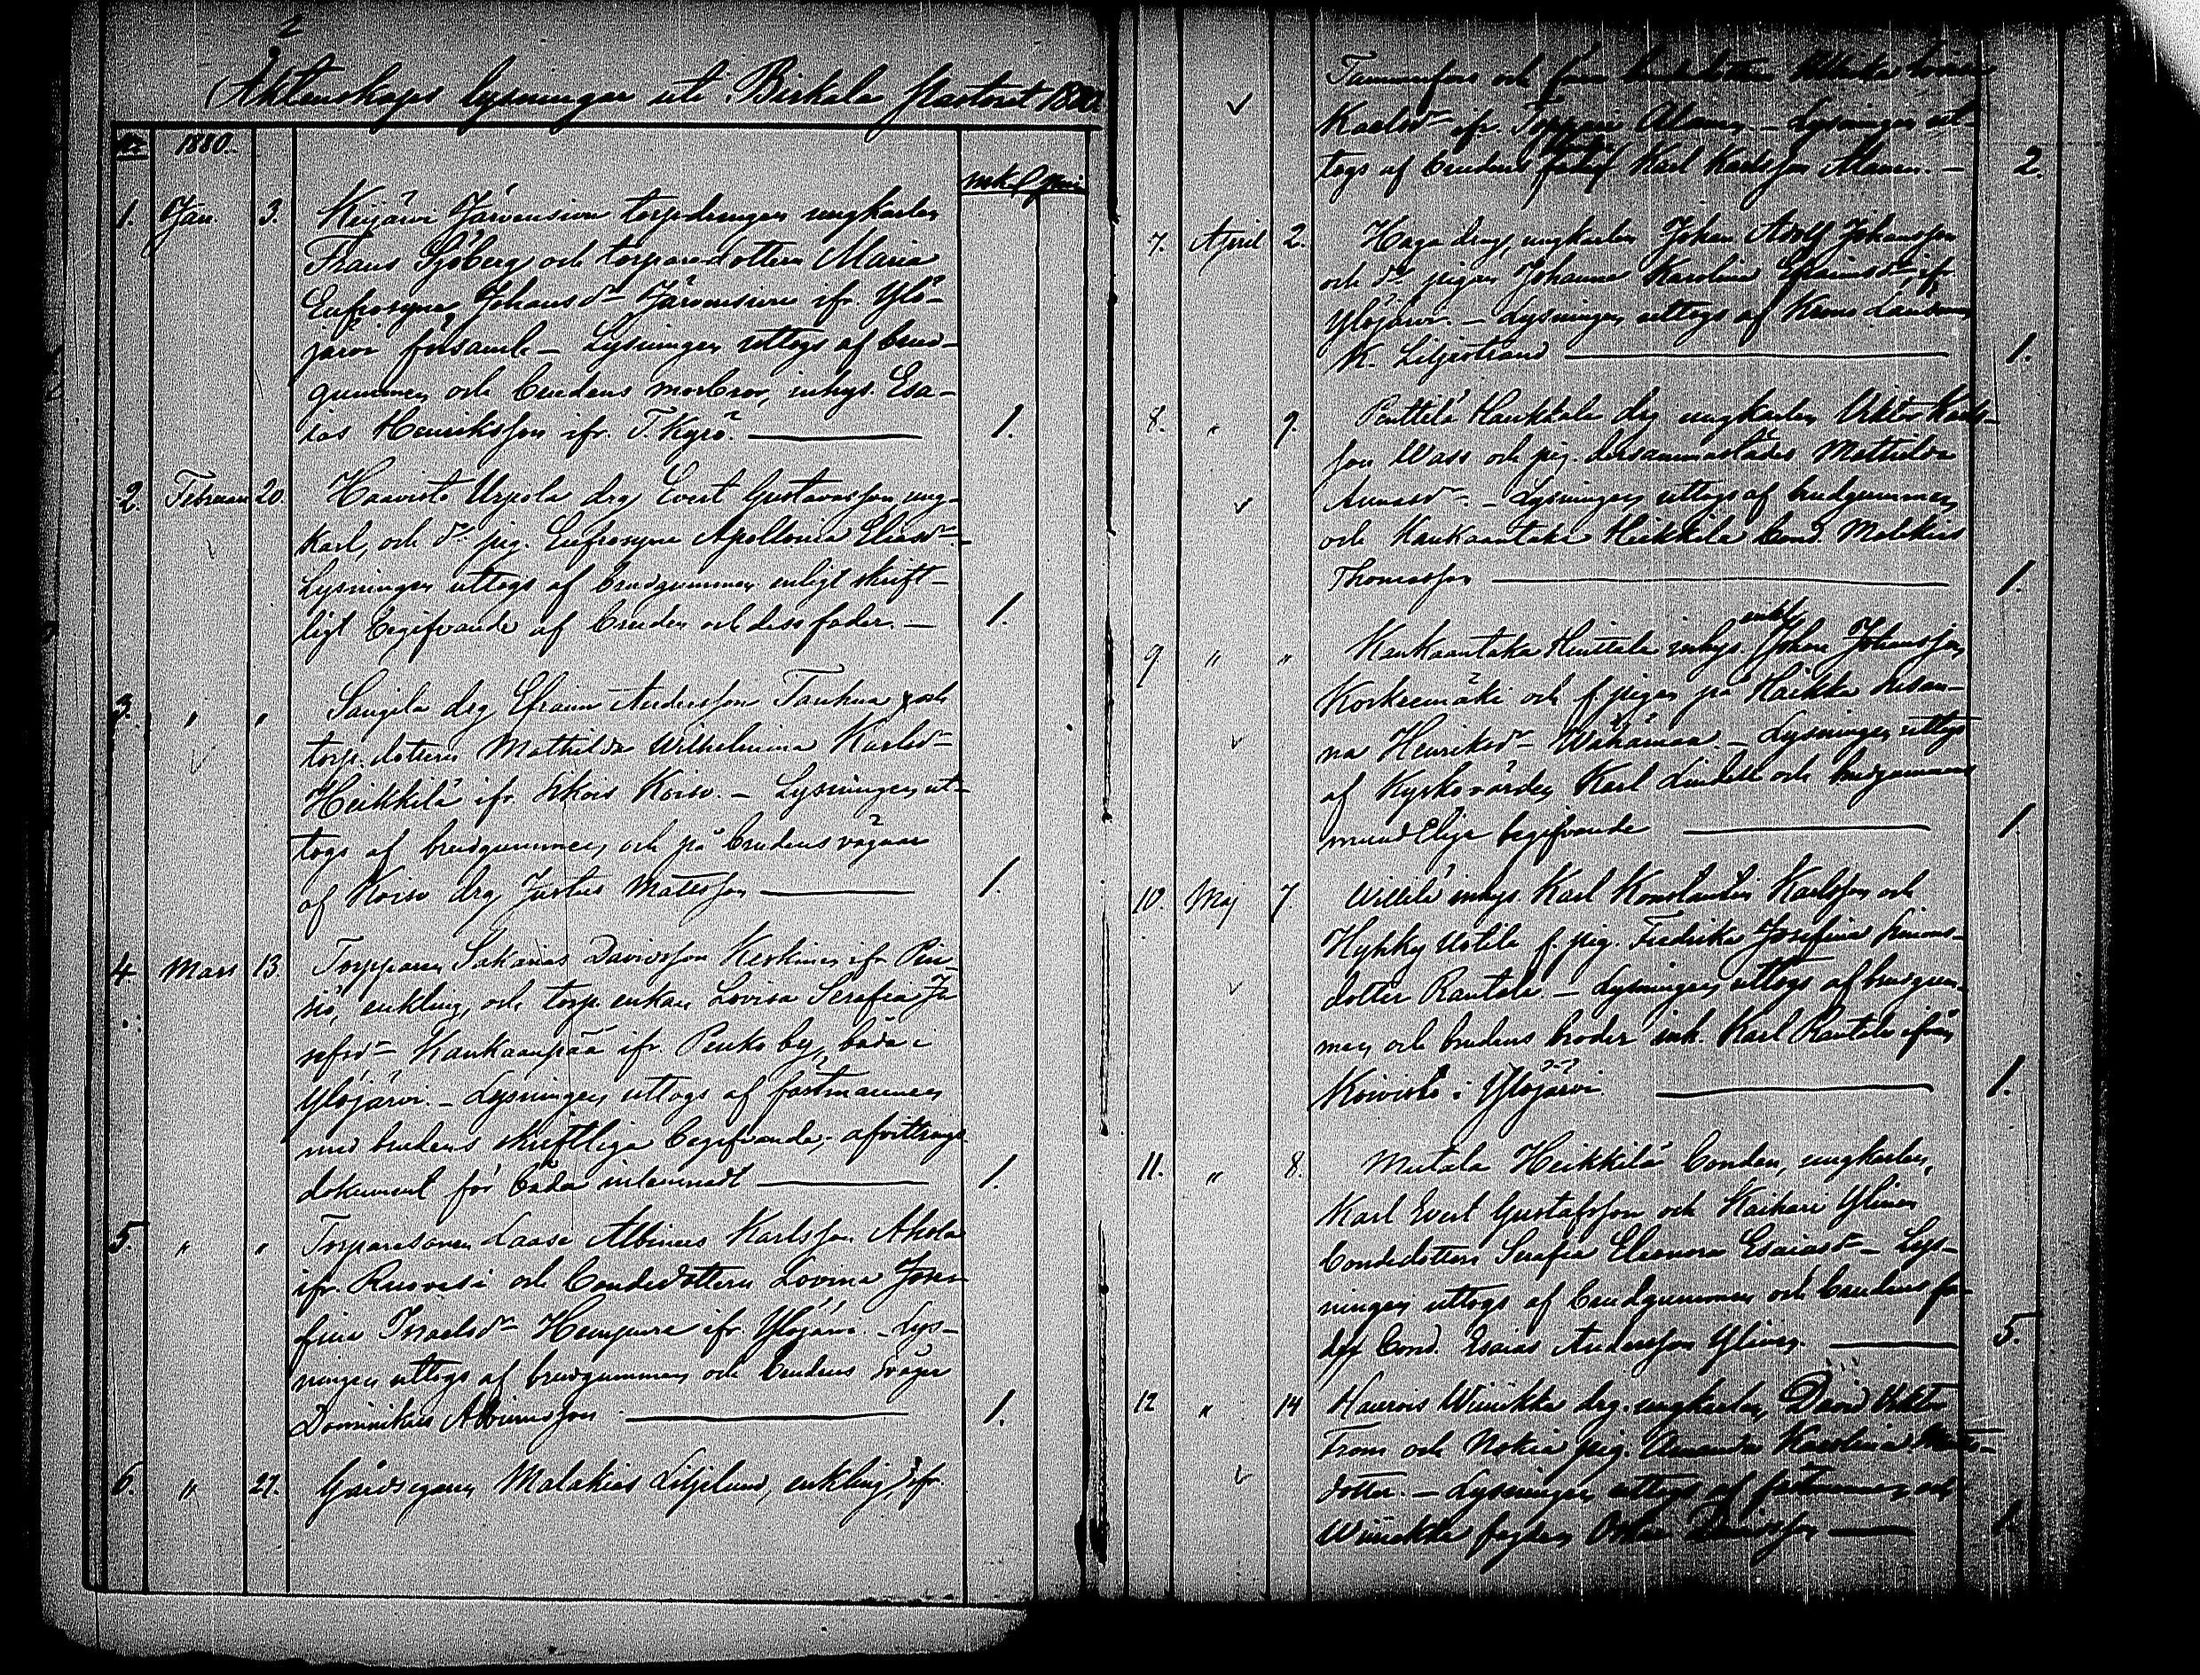 Äktenskaps lysningar uti Birkala Pastorat 1880.
No 1880.
mk. pni
1. Jan. 3. Keijärvi Järvensivu torpdrengen ungkarlen
Frans Sjöberg och torparedottern Maria
Eufrosyne Johansdr Järvensivu ifr. Ylö-
järvi församl. – Lysningen uttogs af brud-
gummen och brudens morbror, inhys. Esa-
ias Henriksson ifr. T. Kyrö. 1.
2. Februari 20. Haavisto Urpola drg Evert Gustavsson, ung-
karl, och dr pig. Eufrosyne Apollonia Eliasdr. –
Lysningen uttogs af brudgummen enligt skrift-
ligt begifvande af bruden och dess fader. – 1.
3. " " drg Efraim Andersson Tanhua och
torp.dottern Mathilda Wilhelmina Karlsdr
Heikkilä ifr. Koivo. – Lysningen ut-
togs af brudgummen och på brudens vägnar
af Koivo drg Justus Matsson 1.
4. Mars 13. Torpparen Sakarias Davidsson Keskinen ifr Pin-
siö, enkling, och torp. enkan Lovisa Serafia Jo-
sefsdr Kankaanpää ifr. Penko by, båda i
Ylöjärvi. – Lysningen uttogs af fästmannen
med brudens skriftliga begifvande; afvittrings
dokument för båda inlemnadt 1.
5. " " Torparesonen Albinus Karlsson Ahola
ifr. Ruovesi och bondedottern Lovina Jose-
fina Israelsdr ifr. Ylöjärvi. – Lys-
ningen uttogs af brudgummen och brudens svåger
Dominikus Albinusson 1.
6. " 27. Gårdsegaren Malakias Liljelund, enkling, ifr.
Tammerfors och
Karlsdr ifr. Alanen. – Lysningen ut-
togs af brudens Karl Karlsson Alanen. – 2.
7. April 2. Haga drg, ungkarlen Johan Adolf Johansson
och dr pigan Johanna Karolina Efraimsdr ifr
Ylöjärvi. – Lysningen uttogs af Krono Länsman
K. Liljestrand 1.
8. " 9. Penttilä Haukkala drg ungkarlen Viktor Karls-
son Wass och pig. dersammastädes Mathilda
– Lysningen uttogs af brudgummen
och Kankaantaka Heikkilä bond. Malakias
Thomasson 1.
9 " " Kankaantaka inhys. enkl. Johan Johansson
Korkeemäki och f. pigan på Haikka Susan-
na Henriksdr Wähämaa. – Lysningen uttogs
af Kyrkovärden Karl Lindell och brudgummens
mundtliga begifvande 1.
10. Maj 7. Willilä inhys Karl Konstantin Karlsson och
Hyhky Uotila f. pig. Fredrika Josefina Simons-
dotter Rantala. – Lysningen uttogs af brudgum-
men och brudens broder inh. Karl Rantala ifrån
Koivisto i Ylöjärvi. 1.
11. " 8. Mutala Heikkilä bonden, ungkarlen,
Karl Evert Gustafsson och Haikari Ylinen
bondedottern Serafia Eleonora Esaiasdr – Lys-
ningen uttogs af brudgummen och brudens fa-
der bond. Esaias Andersson Ylinen. 5.
12 " 14 Haverois Wiinikka drg. ungkarlen, David Viktor
From och Nokia pig. Amanda Karolina Mats-
dotter. – Lysningen uttogs af fästmannen och
Wiinikka Oskar Davidsson 1.